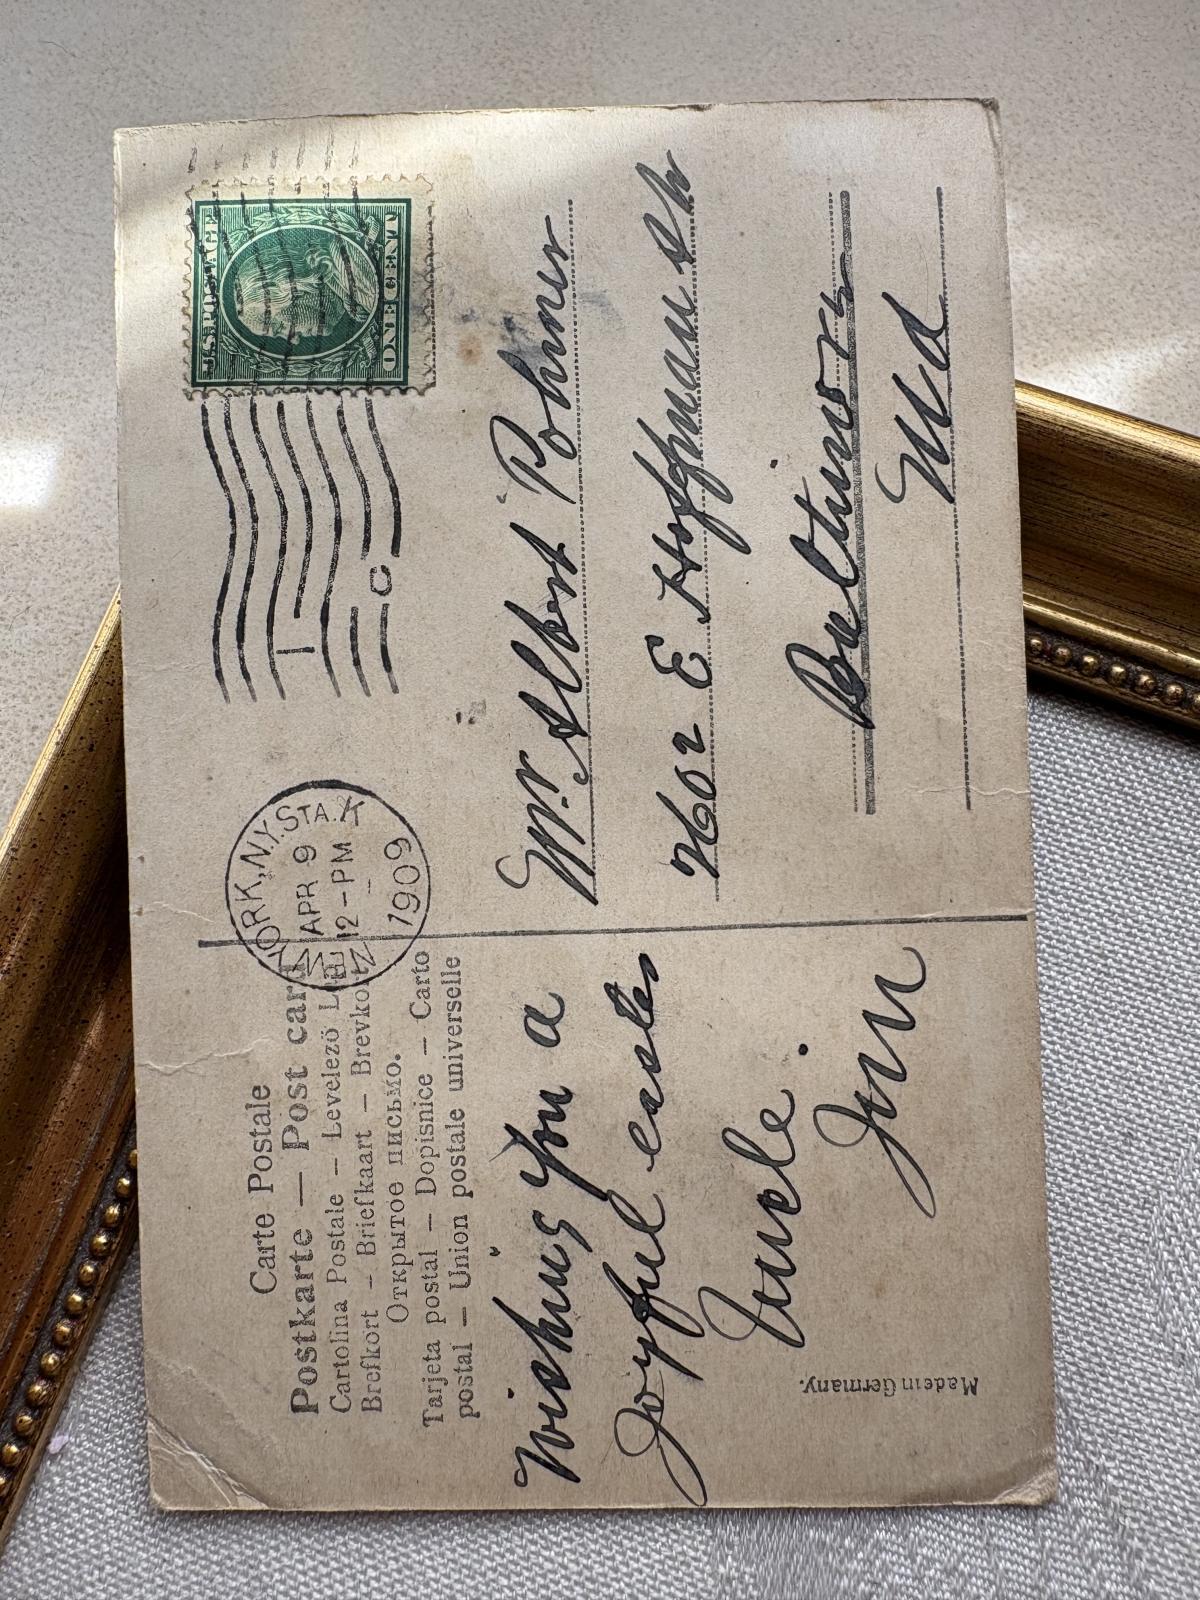 Carte Postale
Postkarte — Post card
Cartolina Postale — Levelező L
Brefkort — Briefkaart — Brevkort
Открытое письмо.
Tarjeta postal — Dopisnice — Carto
postal — Union postale universelle
Wishing you a
Joyful easter
Uncle
Jim
Made in Germany.
U.S. POSTAGE
ONE CENT
YORK, N.Y. STA. K
APR 9
12-PM
1909
1
C
Mr. Albert Pohmer
E Hoffman St
Baltimore
Md